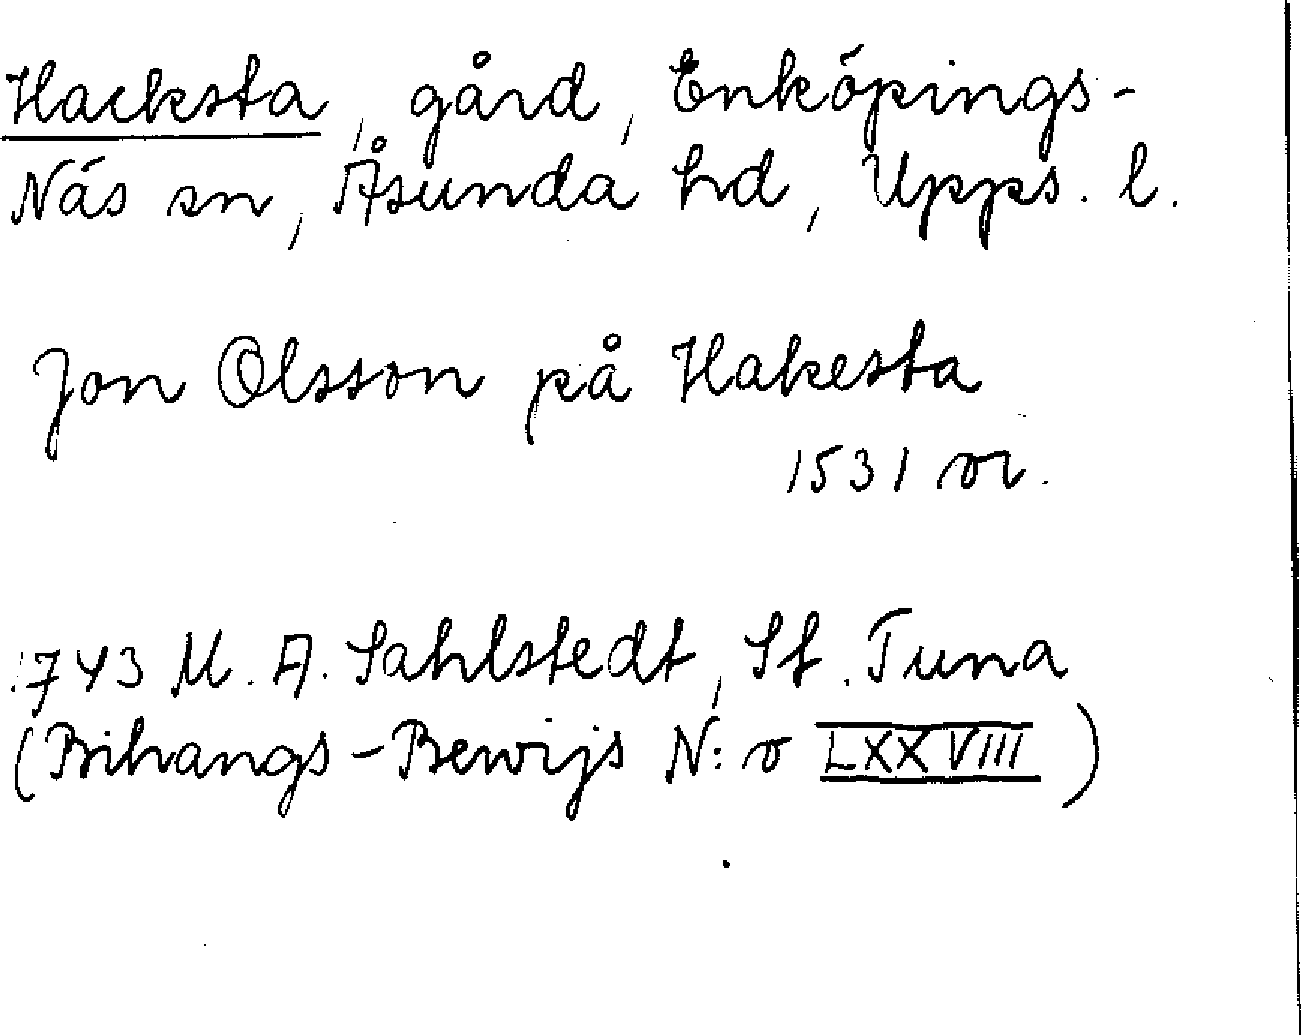 Hacksta, gård, Enköpings-
Näs sn, Åsunda hd, Upps. l.
Jon Olsson på Hakesta
1531 or.
1743 M. A. Sahlstedt, St. Tuna
(Bihangs-Bewijs N:o LXXVIII)